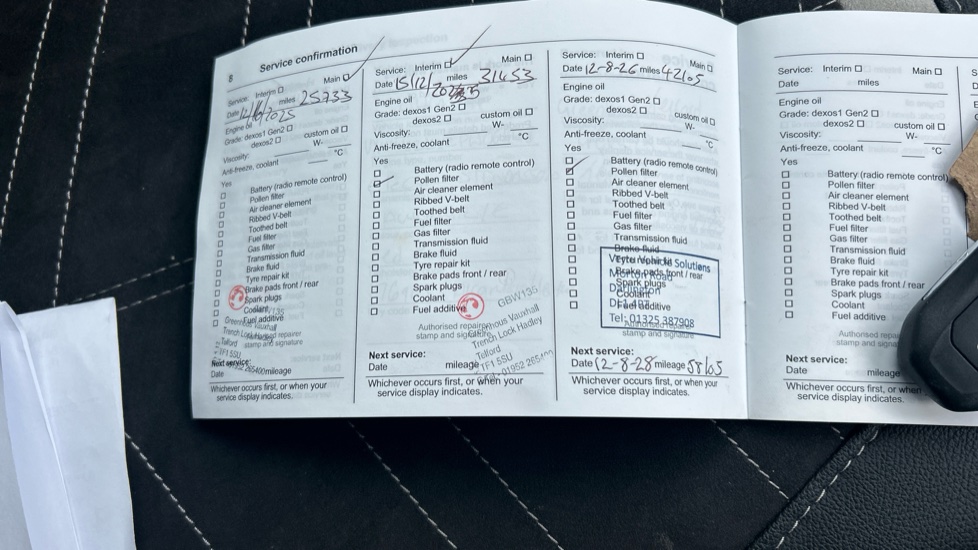 8
Service confirmation
Service: Interim Main
Date 12/6/2025 miles 25733
Engine oil
Grade: dexos1 Gen2
dexos2 custom oil
Viscosity: W-
Anti-freeze, coolant °C
Yes
Battery (radio remote control)
Pollen filter
Air cleaner element
Ribbed V-belt
Toothed belt
Fuel filter
Gas filter
Transmission fluid
Brake fluid
Tyre repair kit
Brake pads front / rear
Spark plugs
Coolant
Fuel additive
Vauxhall
Trench Lock
Telford
TF1 5SU
stamp and signature
Next service:
Date mileage
Whichever occurs first, or when your
service display indicates.
Service: Interim Main
Date 15/12/2025 miles 31453
Engine oil
Grade: dexos1 Gen2
dexos2 custom oil
Viscosity: W-
Anti-freeze, coolant °C
Yes
Battery (radio remote control)
Pollen filter
Air cleaner element
Ribbed V-belt
Toothed belt
Fuel filter
Gas filter
Transmission fluid
Brake fluid
Tyre repair kit
Brake pads front / rear
Spark plugs
Coolant
Fuel additive
GBW135
Authorised repairer
stamp and signature
Vauxhall
Trench Lock Hadley
Telford
TF1 5SU
Next service:
Date mileage
Whichever occurs first, or when your
service display indicates.
Service: Interim Main
Date 12-8-26 miles 42105
Engine oil
Grade: dexos1 Gen2
dexos2 custom oil
Viscosity: W-
Anti-freeze, coolant °C
Yes
Battery (radio remote control)
Pollen filter
Air cleaner element
Ribbed V-belt
Toothed belt
Fuel filter
Gas filter
Transmission fluid
Brake fluid
Vehicle Solutions
Brake pads front / rear
Spark plugs
Darlington
Coolant
Fuel additive
Tel: 01325 387908
Authorised repairer
stamp and signature
Next service:
Date 12-8-28 mileage 58105
Whichever occurs first, or when your
service display indicates.
Service: Interim Main
Date miles
Engine oil
Grade: dexos1 Gen2
dexos2 custom oil
Viscosity: W-
Anti-freeze, coolant °C
Yes
Battery (radio remote control)
Pollen filter
Air cleaner element
Ribbed V-belt
Toothed belt
Fuel filter
Gas filter
Transmission fluid
Brake fluid
Tyre repair kit
Brake pads front / rear
Spark plugs
Coolant
Fuel additive
Authorised
stamp and
Next service:
Date mileage
Whichever occurs first, or when your
service display indicates.